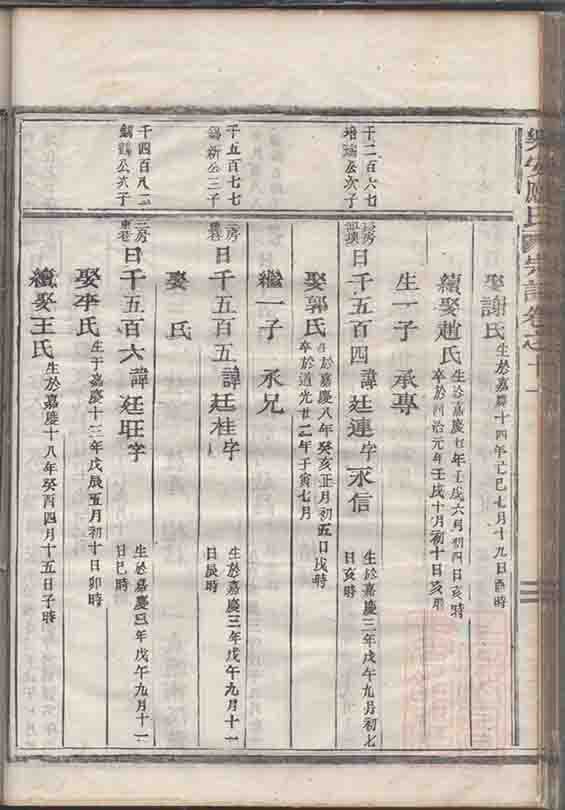 樂安 氏 宗譜卷之十一
娶謝氏 生於嘉慶十四年己巳七月十九日酉時
續娶趙氏 生於嘉慶七年壬戌六月初四日亥時
卒於同治元年壬戌十月初十日亥時
生一子 承專
千二百六七
培 公次子
長房
日千五百四 諱廷連 字永信 生於嘉慶三年戊午九月初七
日亥時
娶郭氏 生於嘉慶八年癸亥正月初五日戌時
卒於道光廿二年壬寅七月
繼一子 承兄
千五百七七
錫新公三子
三房
日千五百五 諱廷桂 字 生於嘉慶三年戊午九月十一
日辰時
娶 氏
千四百八
錫鶴公次子
三房
東巷
日千五百六 諱廷旺 字 生於嘉慶三年戊午九月十一
日巳時
娶李氏 生于嘉慶十三年戊辰五月初十日卯時
續娶王氏 生於嘉慶十八年癸酉四月十五日子時